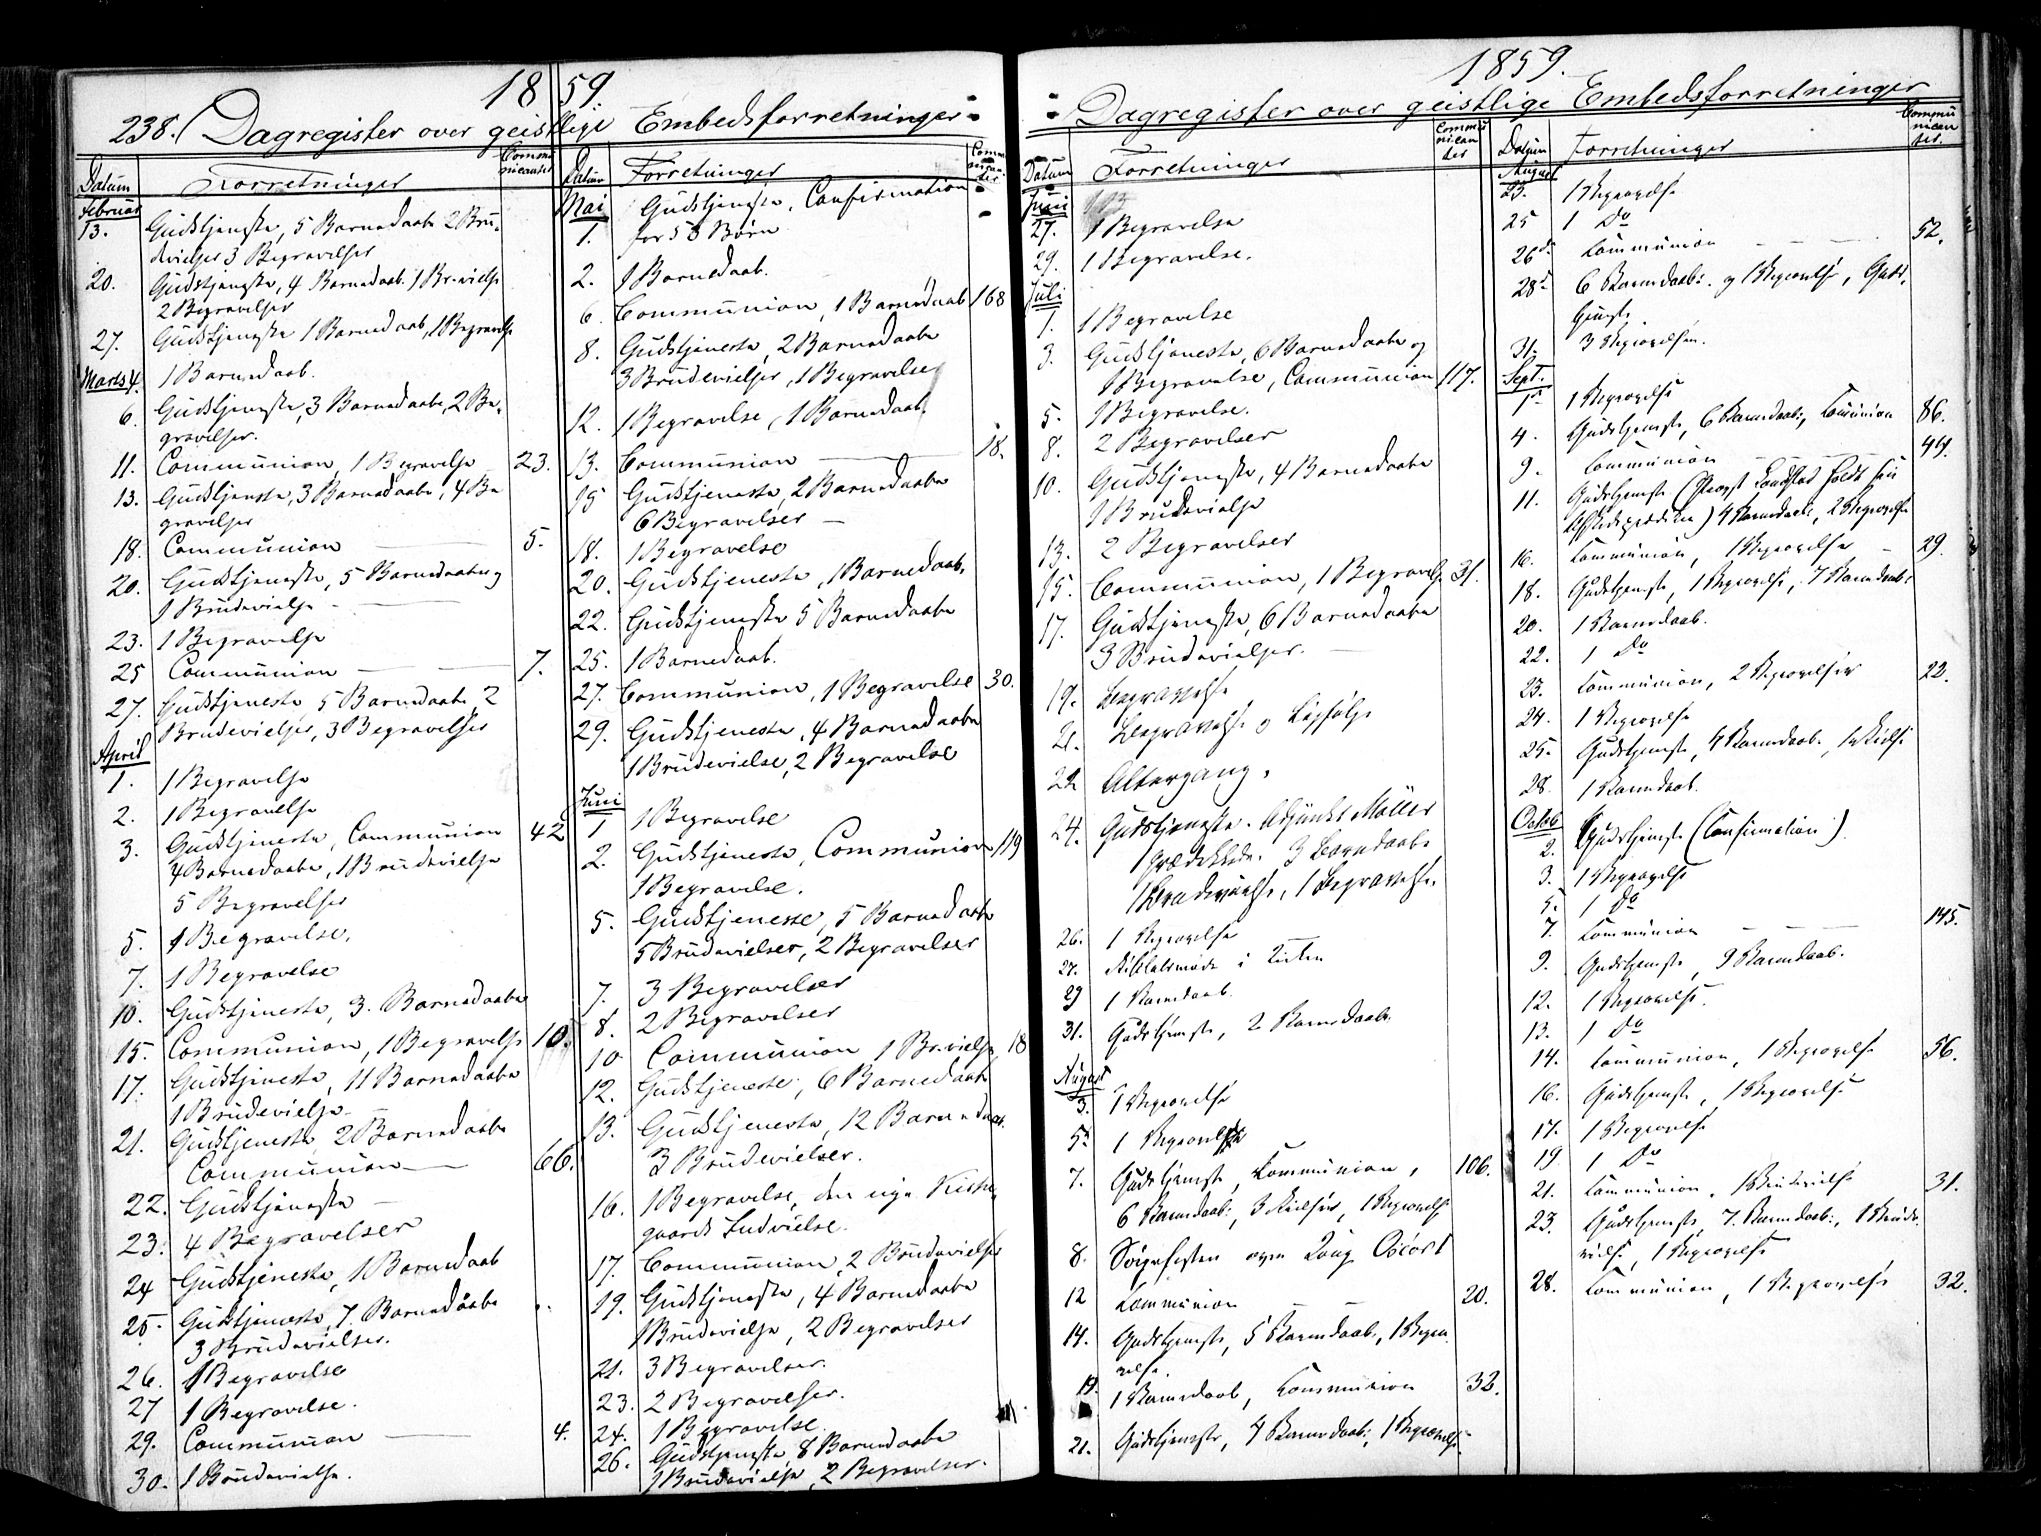 1859.
238. Dagregister over geistlige Embedsforretninger
Datum Forretninger Communicanter
Februar
13. Gudstjeneste, 5 Barnedaabe 2 Bru-
devielser 3 Begravelser
20. Gudstjeneste, 4 Barnedaab. 1 Br.vielse
2 Begravelser
27. Gudstjeneste 1 Barnedaab, 1 Begravelse
Marts 4. 1 Barnedaab.
6. Gudstjeneste, 3 Barnedaabe, 2 Be-
gravelser.
11. Communion, 1 Begravelse 23.
13. Gudstjeneste, 3 Barnedaabe, 4 Be
gravelser
18. Communion 5.
20. Gudstjeneste, 5 Barnedaabe og
1 Brudevielse
23. 1 Begravelse
25 Communion 7.
27. Gudstjeneste 5 Barnedaabe, 2
Brudevielser, 3 Begravelser
April
1. 1 Begravelse
2. 1 Begravelse
3. Gudstjeneste, Communion 42
4 Barnedaabe, 1 Brudevielse
5 Begravelser
5. 1 Begravelse.
7. 1 Begravelse
10. Gudstjeneste, 3. Barnedaabe
15. Communion, 1 Begravelse 10.
17. Gudstjeneste, 11 Barnedaabe
1 Brudevielse
21. Gudstjeneste, 2 Barnedaabe
Communion 66.
22. Gudstjeneste
23. 4 Begravelser
24 Gudstjeneste, 1 Barnedaab
25. Gudstjeneste, 7. Barnedaabe
3 Brudevielser.
26. 1 Begravelse
27 1 Begravelse.
29. Communion 4.
30. 1 Brudevielse.
Datum Forretninger Communicanter
Mai
1. Gudstjeneste, Confirmation
for 53 Børn
2. 1 Barnedaab.
6. Communion, 1 Barnedaab 168
8. Gudstjeneste, 2 Barnedaabe
3 Brudevielser, 1 Begravelse
12. 1 Begravelse, 1 Barnedaab.
13. Communion 18.
15 Gudstjeneste, 2 Barnedaabe
6 Begravelser
18. 1 Begravelse
20. Gudstjeneste, 1 Barnedaab.
22. Gudstjeneste 5 Barnedaabe
25. 1 Barnedaab.
27. Communion, 1 Begravelse 30.
29. Gudstjeneste, 4 Barnedaabe
1 Brudevielse, 2 Begravelse
Juni
1 1 Begravelse
2. Gudstjeneste, Communion 119
1 Begravelse.
5. Gudstjeneste, 5 Barnedaabe
5 Brudevielser, 2 Begravelser
7. 3 Begravelser
8. 2 Begravelser
10 Communion 1 Br.vielse 18
12. Gudstjeneste, 6 Barnedaabe
13. Gudstjeneste, 12 Barnedaabe.
3 Brudevielser.
16. 1 Begravelse, den nye Kirke-
gaards Indvielse.
17. Communion, 2 Brudevielser
19. Gudstjeneste, 4 Barnedaabe
1 Brudevielse, 2 Begravelser
21. 3 Begravelser.
23. 2 Begravelser.
24. 1 Begravelse.
26. Gudstjeneste, 8 Barnedaabe
1 Brudevielse, 2 Begravelser.
1859.
Dagregister over geistlige Embedsforretninger
Datum Forretninger Communicanter
Juni
27. 1 Begravelse
29. 1 Begravelse.
Juli
1. 1 Begravelse
3. Gudstjeneste, 6 Barnedaabe og
1 Begravelse, Communion 117.
5. 1 Begravelse.
8. 2 Begravelser
10. Gudstjeneste, 4 Barnedaabe
1 Brudevielse
13. 2 Begravelser
15. Communion, 1 Begravelse 31.
17. Gudstjeneste, 6 Barnedaabe
3 Brudevielser.
19. Begravelse
21. Begravelse og Ligfølge
22 Altergang.
24. Gudstjeneste. Adjunkt Møller
prædikede. 3 Barnedaabe
1 Brudevielse, 1 Begravelse.
26. 1 Begravelse
27. Bibelsmøde i Kirken
29 1 Barnedaab.
31. Gudstjeneste, 2 Barnedaabe.
August
3. 1 Begravelse
5. 1 Begravelse
7. Gudstjeneste, Communion, 106.
6 Barnedaabe, 3 Vielser, 1 Begravelse
8. Sørgefesten over Kong Oscar I
12 Communion 20.
14. Gudstjeneste, 5 Barnedaab., 1 Begra
velse.
19. 1 Barnedaab, Communion 32.
21. Gudstjeneste, 4 Barnedaab., 1 Begravelse
Datum Forretninger Communicanter.
August
23. 1 Begravelse
25 1 Do
26de Communion 52.
28de 6 Barnedaab. og 1 Begravelse, Guds-
tjeneste
31. 3 Begravelser.
Sept.
1ste 1 Begravelse
4. Gudstjeneste, 6 Barnedaab., Communion 86.
9. Communion 44.
11. Gudstjeneste (Provst Landstad holdt sin
Afskedsprædiken) 4 Barnedaabe, 2 Begravelse
16. Communion, 1 Begravelse 29.
18. Gudstjeneste, 1 Begravelse, 7 Barnedaab.
20. 1 Barnedaab.
22. 1 Do
23. Communion, 2 Begravelser 22.
24. 1 Begravelse
25. Gudstjeneste, 4 Barnedaab., 1 Vielse
28. 1 Barnedaab.
Octob
2. Gudstjeneste (Confirmation).
3. 1 Begravelse
5. 1 Do
7. Communion 145.
9. Gudstjeneste, 9 Barnedaab.
12. 1 Begravelse.
13. 1 Do
14. Communion, 1 Begravelse 56.
16. Gudstjeneste, 1 Begravelse
17. 1 Begravelse
19 1 Do
21. Communion, 1 Brudevielse 31.
23. Gudstjeneste, 7. Barnedaab., 1 Brude-
vielse, 1 Begravelse
28. Communion, 1 Begravelse 32.